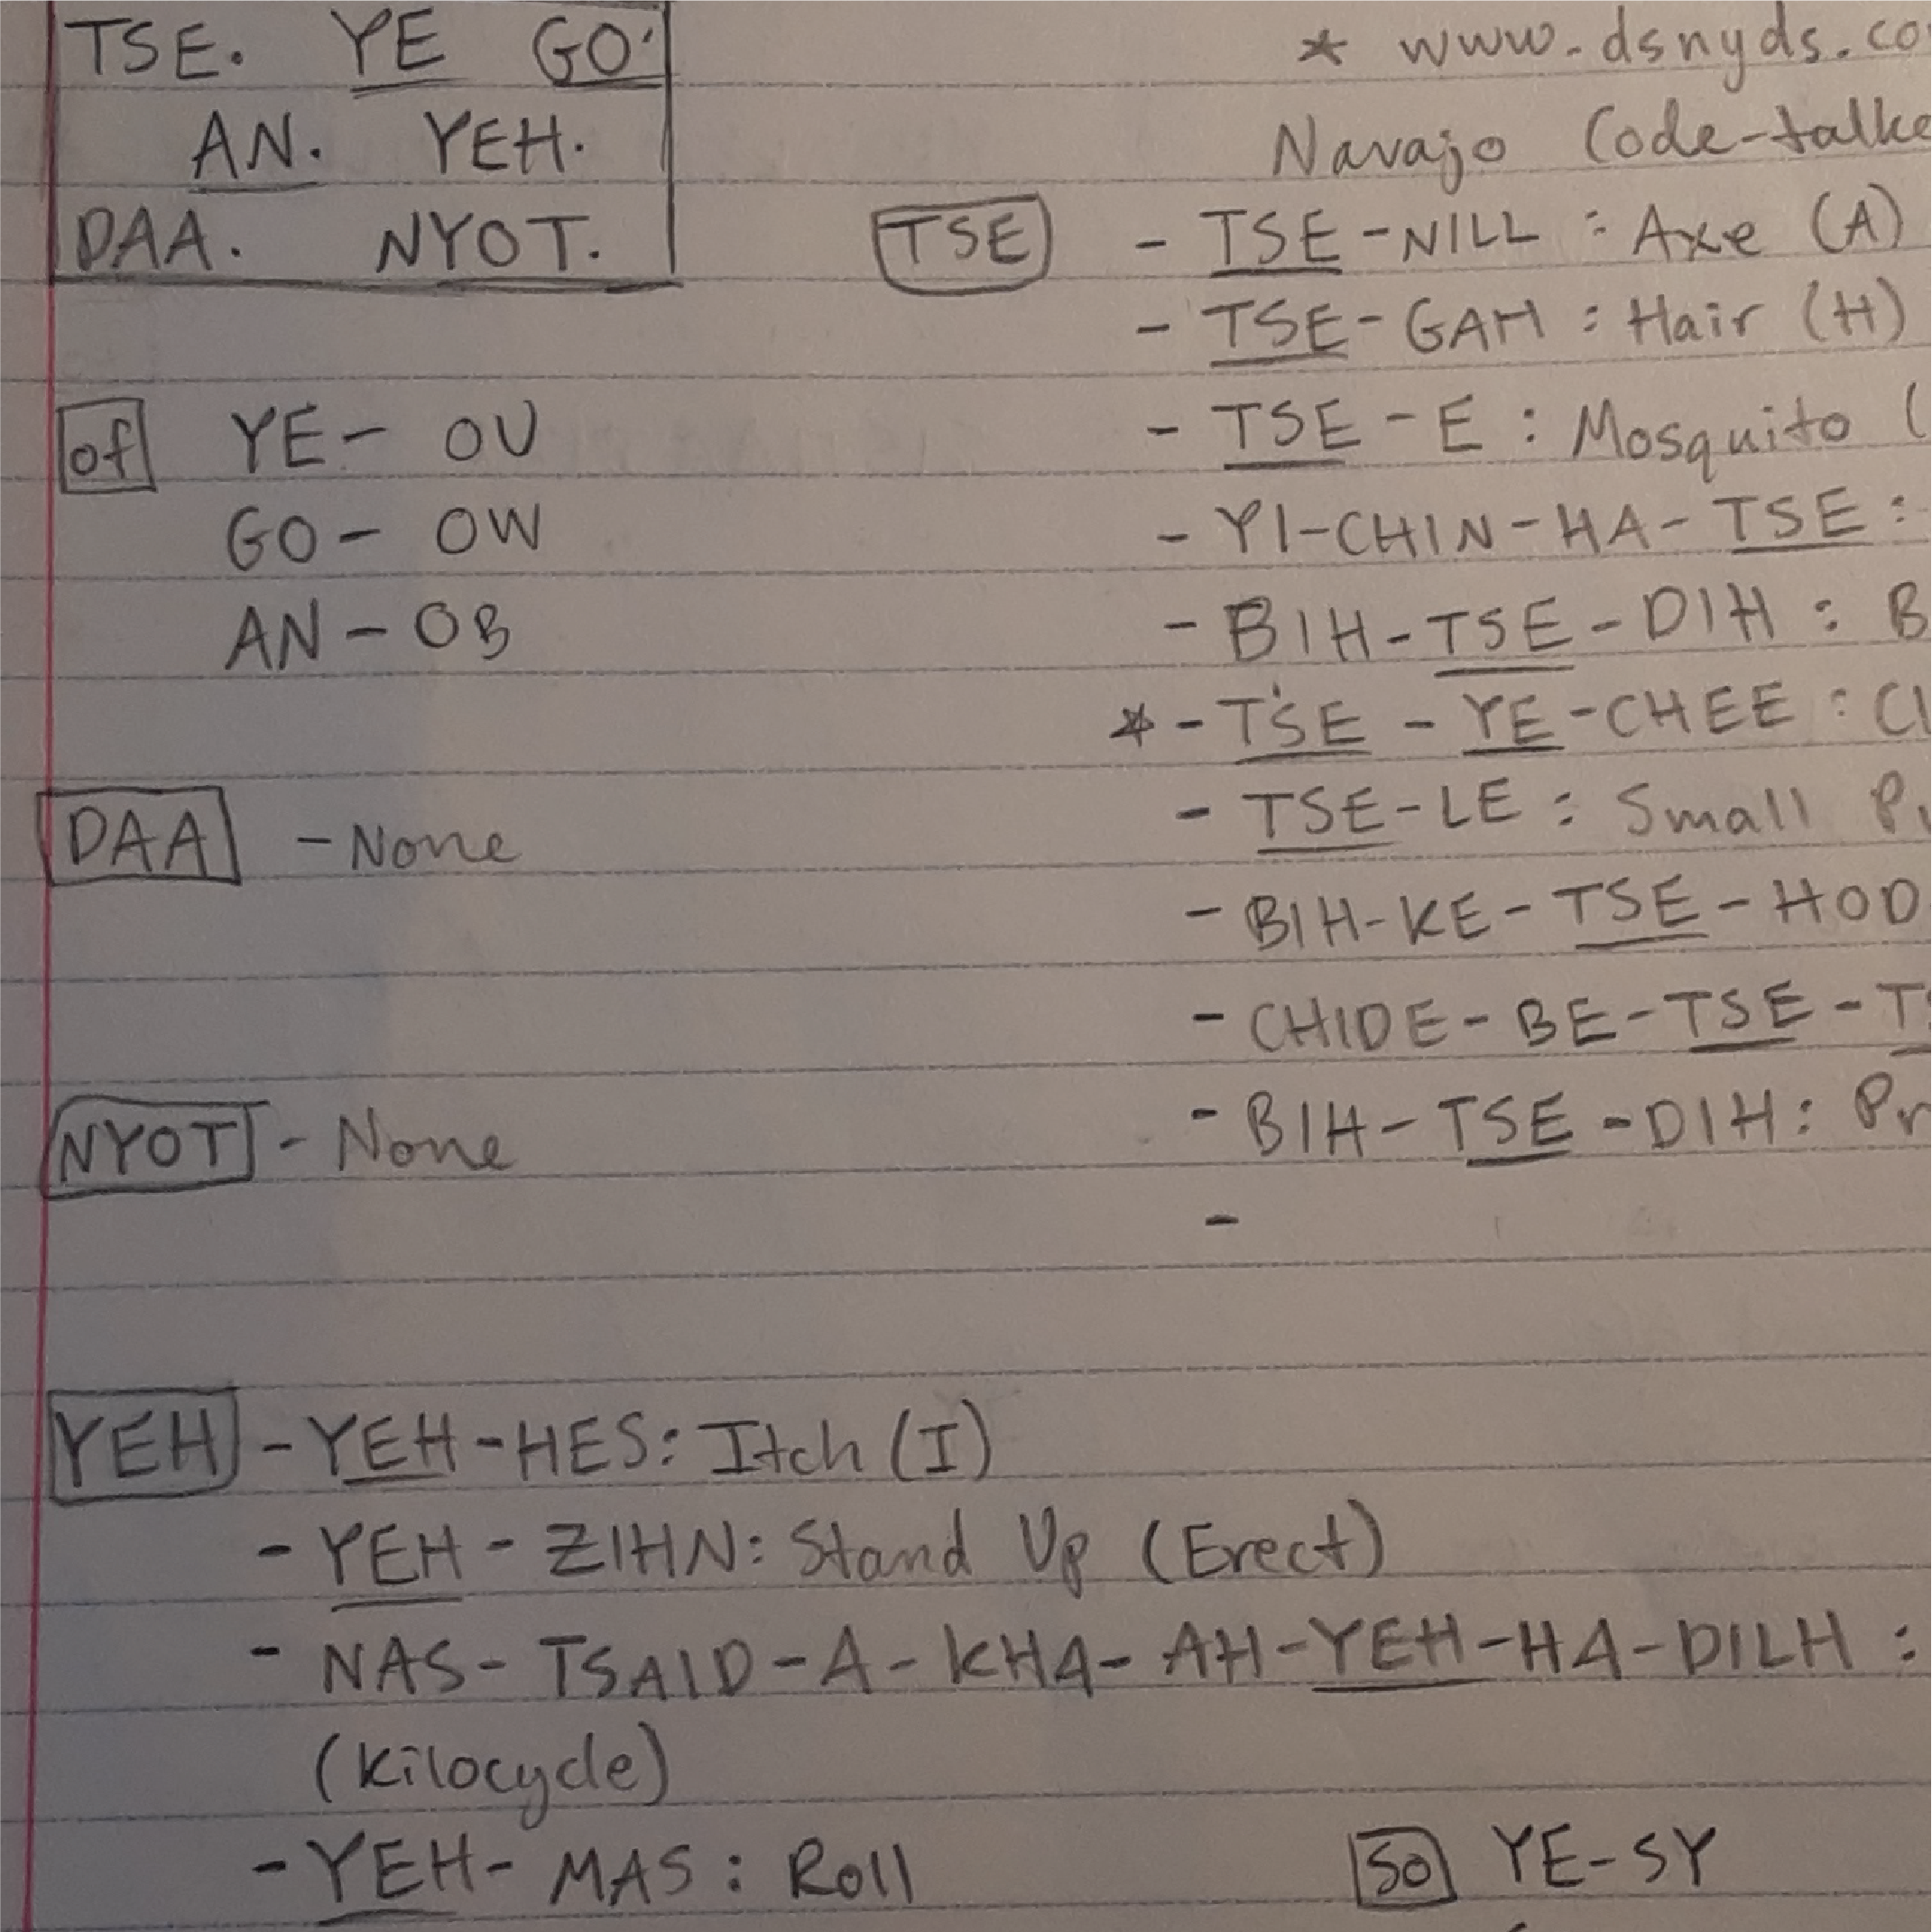 TSE. YE GO.
AN. YEH.
DAA. NYOT.
* www.dsnyds.co
Navajo Code-talke
TSE - TSE-NILL : Axe (A)
- TSE-GAH : Hair (H)
- TSE-E : Mosquito (
- YI-CHIN-HA-TSE :
- BIH-TSE-DIH : B
* - TSE-YE-CHEE : Cl
- TSE-LE : Small Pu
- BIH-KE-TSE-HOD
- CHIDE-BE-TSE-TS
- BIH-TSE-DIH : Pr
-
of YE - OU
GO - OW
AN - OB
DAA - None
NYOT - None
YEH - YEH-HES: Itch (I)
- YEH-ZIHN: Stand Up (Erect)
- NAS-TSAID-A-KHA-AH-YEH-HA-DILH :
(Kilocycle)
- YEH-MAS : Roll
so YE-SY